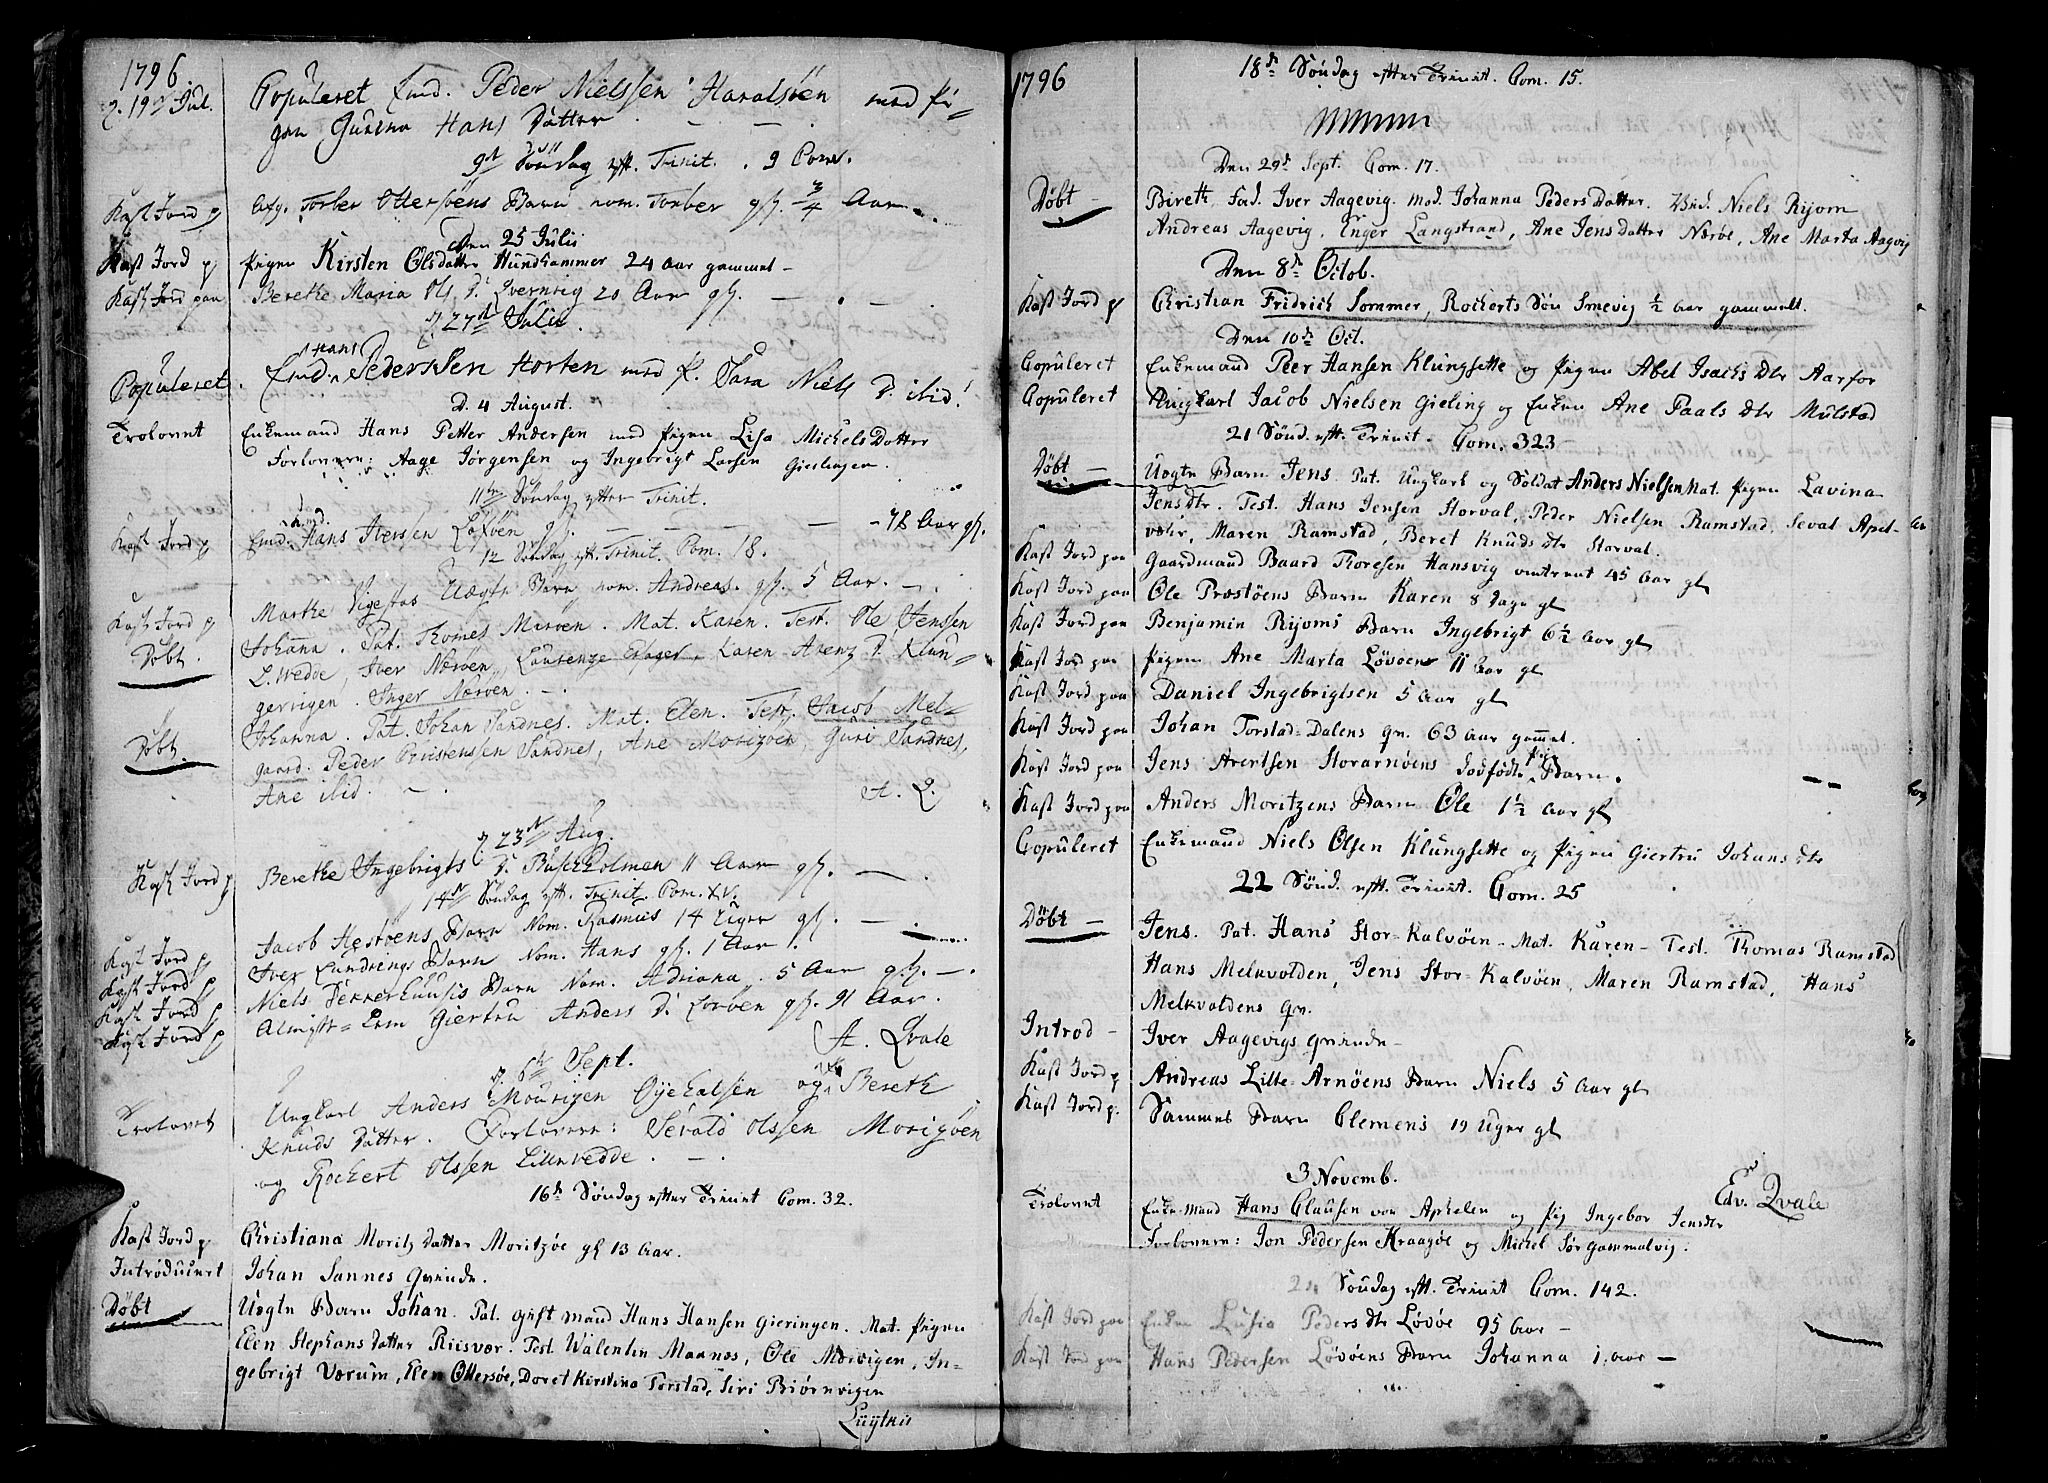 1796
D. 19de Jul. Copuleret Emd. Peder Nielssen Haralsöen med Pi=
gen Gurina Hans Datter.
9de Söndag eft. Trinit. 9 Com.
Kast Jord p Afg. Torber Ottersöens Barn nom. Torber gl. 3/4 Aar
Den 25 Julii
Kast Jord p Pigen Kirsten Olsdatter Hundhammer 24 Aar gammel
Kast Jord paa Berethe Maria Ols D. Qvernvig 20 Aar gl.
D. 27de Julii
Copuleret. Emd. Hans Pederssen Horten med P. Sara Niels D. ibid!
D. 4 August.
Trolovet Enkemand Hans Petter Andersen med Pigen Lisa Michels Datter
Forlovere: Aage Jörgensen og Ingebrigt Larsen Gieslingen.
11te Söndag efter Trinit.
Kast Jord p Emd. Hans Iverssen Löföen gl. 78 Aar gl.
12 Söndag eft. Trinit. Com. 18.
Kast Jord p Marthe Vigestas Uægte Barn nom. Andreas. gl. 5 Aar.
Döbt. Johanna. Pat. Thomes Meröen. Mat. Karen. Test. Ole Jenssen
L. Wedde, Iver Næröen, Laurenze, Karen Arenz D. Klun=
geringen. Inger Næröen.
Döbt. Johanna. Pat. Johan Sandnes. Mat. Elen. Test. Jacob Mel=
gaard. Peder Christenssen Sandnes, Ane Morizöen, Guri Sandnes,
Ane ibid. A. Q.
D. 23de Aug.
Kast Jord p Berethe Ingebrigts D. Buschholman 11 Aar gl.
14de Söndag eft. Trinit. Com. XV.
Kast Jord p Jacob Hestöens Barn Nom. Rasmus 14 Uger gl.
Kast Jord p Iver Lundrings Barn Nom. Hans gl. 1 Aar.
Kast Jord p Niels Dekkerhuusis Barn Nom. Adriana. 5 Aar gl.
Kast Jord p Almisse=Lem Giertru Anders D. Löröen gl. 91 Aar.
A. Qvale
D. 6te Sept.
Trolovet Ungkarl Anders Mourizen Oyehalsen og Bereth
Knuds Datter. Forlovere: Sevald Olssen Morizöen
og Rochert Olssen Lillevedde.
16de Söndag efter Trinit Com. 32.
Kast Jord p Christiana Moritz Datter Moritzöe gl 13 Aar.
Introduceret Johan Sannes Qvinde.
Döbt Uegte Barn Johan. Pat. gift mand Hans Hansen Gieringen. Mat. Pigen
Elen Stephans datter Riisvær. Test. Walentin Marnæs, Ole Mærvigen, In=
gebrigt Værum, Elen Ottersöe, Doret Kirstina Torstad, Siri Biörnvigen
1796
18de Söndag efter Trinit. Com. 15.
Den 29de Sept. Com. 17.
Döbt Bireth, Fad. Iver Aagevig. mod. Johanna Peders Datter. Vid. Niels Rijom
Andreas Aagevig, Inger Langstrand, Ane Jens datter Nærøe, Ane Marta Aagvig
Den 8de Octob.
Kast Jord p Christian Fridrich Sommer, Rocherts Sön Smevig 1/2 Aar gammelt.
Den 10de Oct.
Copuleret Enkemand Peer Hansen Klungsette og Pigen Abel Isachs Dtr Aarfor
Copuleret Ungkarl Jacob Nielsen Gieling og Enken Ane Paals Dtr Mulstad
21 Sönd. eft. Trinit. Com. 323
Döbt Uegte Barn Jens. Pat. Ungkarl og Soldat Anders Nielsen Mat. Pigen Lavina
Jensdtr. Test. Hans Jensen Storval, Peder Nielsen Ramstad, Seval Apel-
vær, Maren Ramstad, Beret Knuds Dtr Storval.
Kast Jord paa Gaardmand Baard Thoresen Hansvig omtrent 45 Aar gl
Kast Jord paa Ole Præstöens Barn Karen 8 Dage gl
Kast Jord paa Benjamin Rijoms Barn Ingebrigt 6 1/2 Aar gl
Kast Jord paa Pigen Ane Marta Lövöen 11 Aar gl
Kast Jord paa Daniel Ingebrigtsen 5 Aar gl
Kast Jord paa Johan Torstad-Dalens qv. 63 Aar gammel.
Kast Jord paa Jens Arentsen Storarnöens dödfödte Pige Barn.
Kast Jord paa Anders Moritzens Barn Ole 1 1/2 Aar gl
Copuleret Enkemand Niels Olsen Klungsette og Pigen Giertru Johans dtr
22 Sönd. eft. Trinit. Com. 25
Döbt Jens. Pat. Hans Stor-Kalvöen - Mat. Karen - Test. Thomas Ramstad
Hans Melkvolden, Jens Stor-Kalvöen, Maren Ramstad, Hans
Melkvoldens qv.
Introd Iver Aagevigs qvinde
Kast Jord p Andreas Lille-Arnöens Barn Niels 5 Aar gl
Kast Jord p. Sammes Barn Clemens 19 Uger gl
3 Novemb. Edv. Qvale
Trolovet Enke-mand Hans Clausen von Aphelen og Pig Ingebor Jensdtr
Forlovere: Jon Pedersen Kraagöe og Michel Sörgammelvig.
Söndag eft. Trinit Com. 142.
Kast Jord paa Enken Lusia Peders dtr Lövöe 95 Aar
Kast Jord paa Hans Pedersen Lövöens Barn Johanna 1. Aar